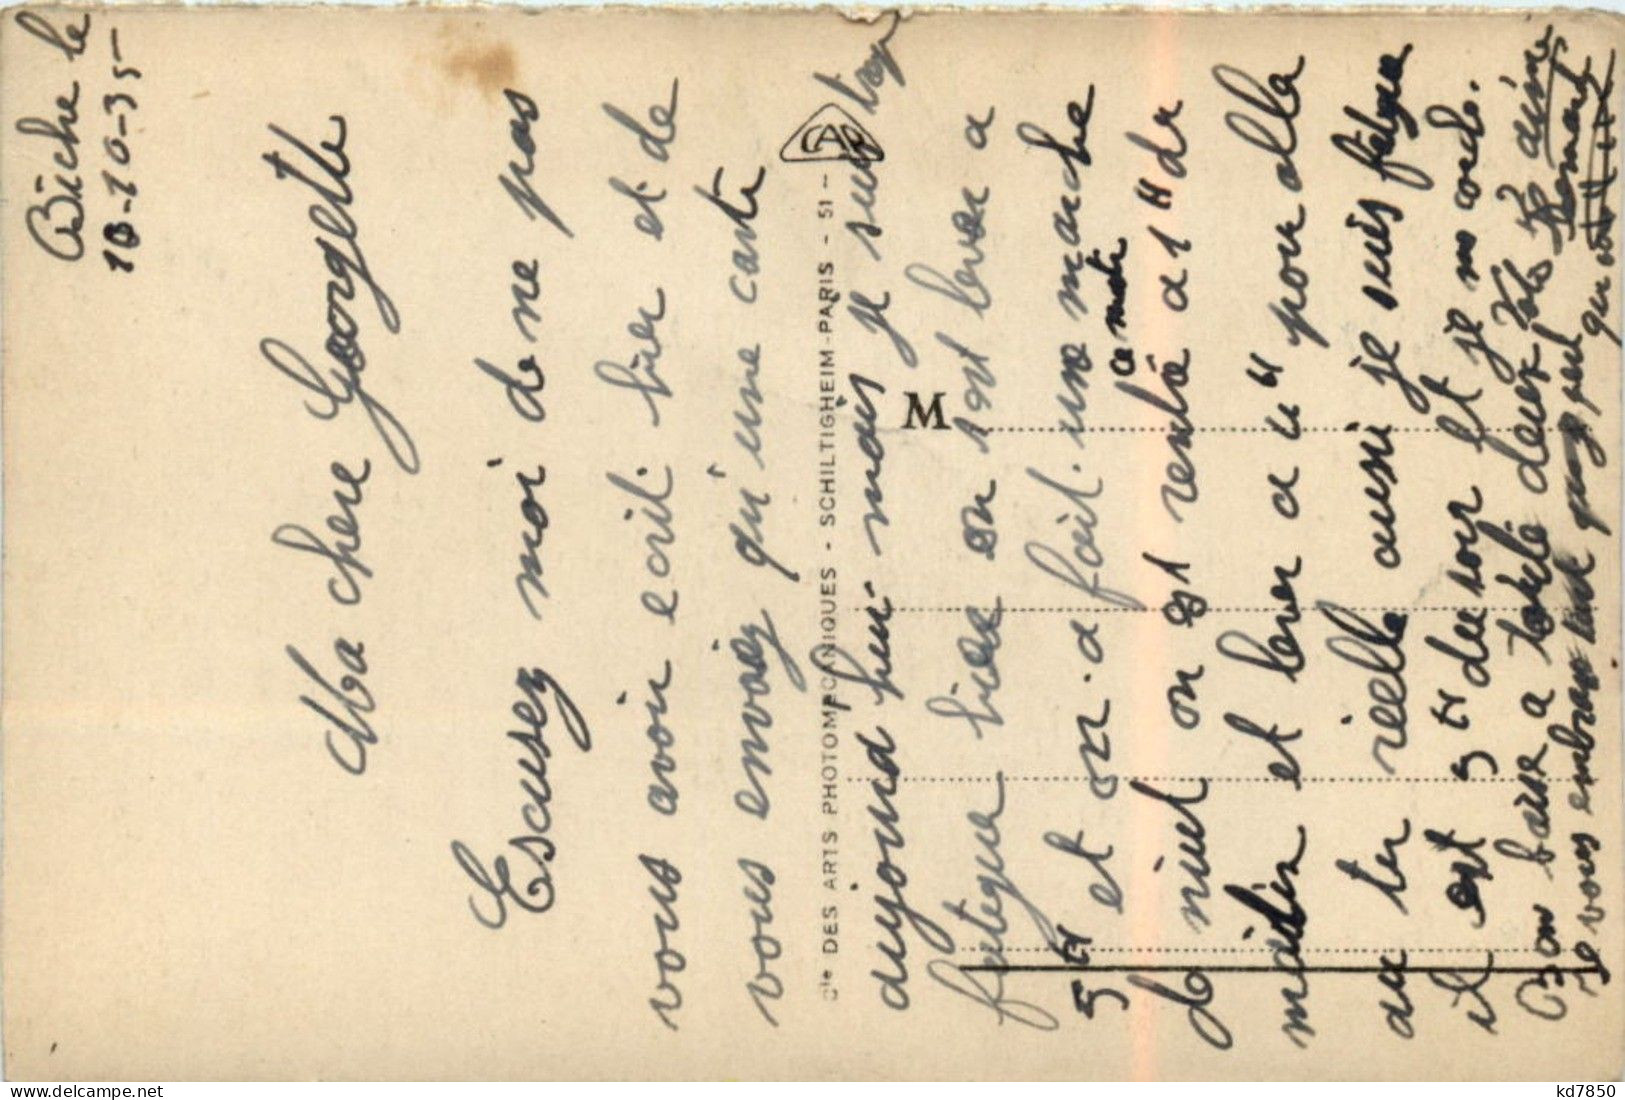 Biche le
18-10-35
Ma chere Georgette
Escusez moi de ne pas
vous avoir ecrit hier et de
vous envoiez qu'une carte
aujourd hui mais je suis trop
fatigue hier on s est lever a
5 H et on a fait une marche
a moto
de nuit on est rentré a 1 H du
matin et lever a 4 H pour alle
au ter rielle ausi je suis fatigue
il est 5 H du soir et je m couche.
Bon baise a toute deux
Je vous embrasse
qui
Cie DES ARTS PHOTOMÉCANIQUES - SCHILTIGHEIM-PARIS - 51 -
CAP
M
kd7850